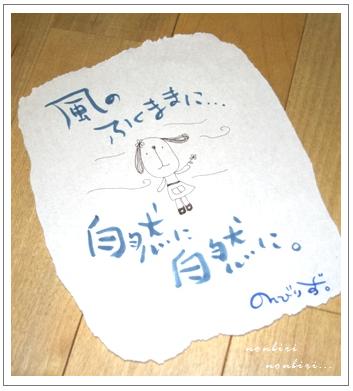 風の
ふくままに…
自然に
自然に。
のんびりず。
nonbiri
nonbiri...